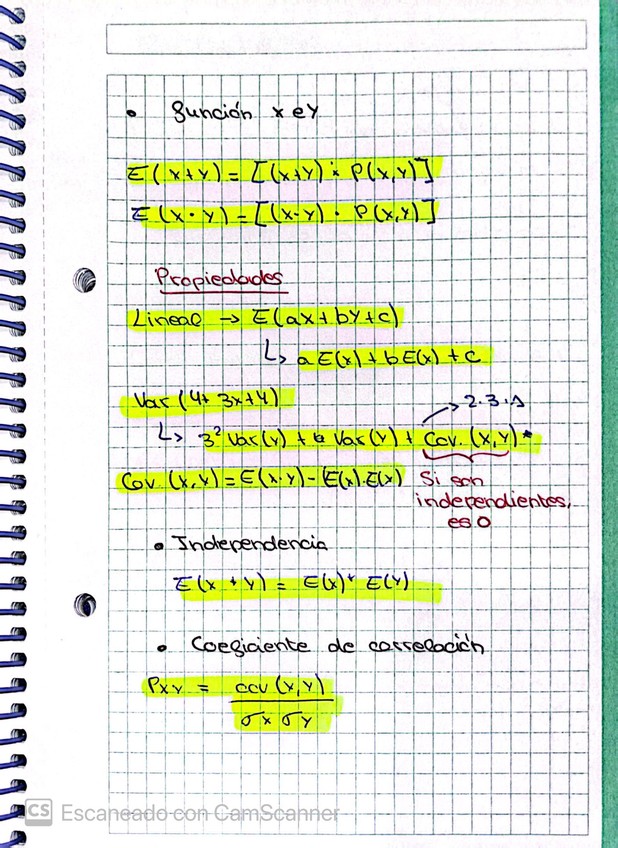 • función x e y
E(x+y) = [(x+y) · P(x,y)]
E(x·y) = [(x·y) · P(x,y)]
Propiedades
Lineal → E(ax+by+c)
↳ a E(x) + b E(x) + c
Var (4+3x+y)
↳ 3² Var(y) + Var(y) + Cov. (x,y) *
→ 2·3·1
Cov. (x,y) = E(x·y) - (E(x)·E(x)
Si son
independientes,
es 0
• Independencia
E(x+y) = E(x) + E(y)
• Coeficiente de correlación
Pxy = cov (x,y)
σx σy
CS Escaneado con CamScanner